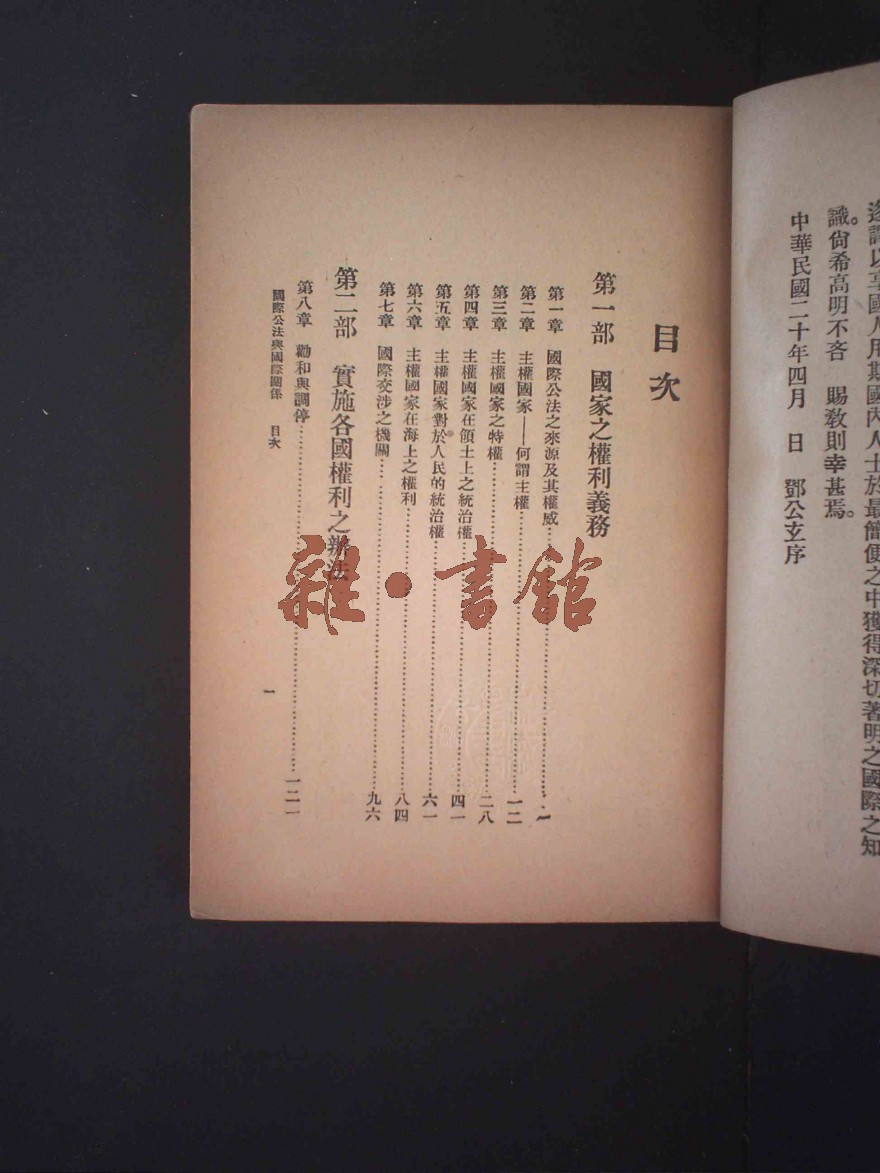 逐譯以享國人用斯國內人士於最簡便之中獲得深切著明之國際之知
識。尙希高明不吝　賜敎則幸甚焉。
中華民國二十年四月　日　鄧公玄序
目次
第一部　國家之權利義務
第一章　國際公法之來源及其權威……一
第二章　主權國家——何謂主權……一二
第三章　主權國家之特權……二八
第四章　主權國家在領土上之統治權……四一
第五章　主權國家對於人民的統治權……六一
第六章　主權國家在海上之權利……八四
第七章　國際交涉之機關……九六
第二部　實施各國權利之辦法
第八章　勸和與調停……一二一
國際公法與國際關係　目次
一
雜·書館